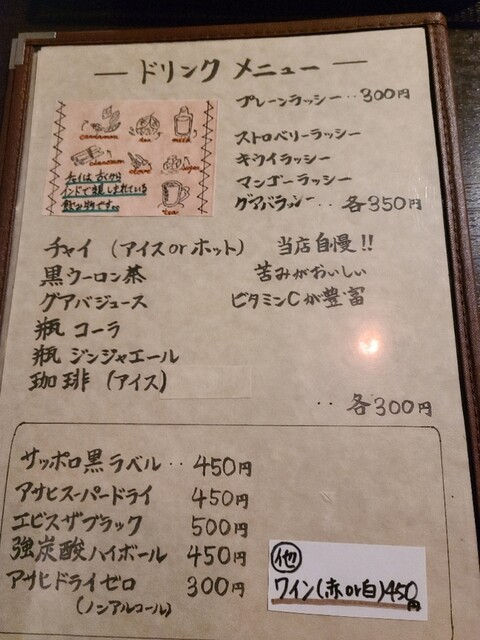 ドリンク メニュー
プレーンラッシー‥300円
cardamon
milk
cinnamon
clove
sugar
tea
チャイは古くから
インドで親しまれている
飲み物です。
ストロベリーラッシー
キウイラッシー
マンゴーラッシー
グアバラッシー‥各350円
チャイ (アイスorホット) 当店自慢!!
黒ウーロン茶 苦みがおいしい
グアバジュース ビタミンCが豊富
瓶 コーラ
瓶 ジンジャエール
珈琲 (アイス)
‥各300円
サッポロ黒ラベル‥450円
アサヒスーパードライ 450円
エビスザブラック 500円
強炭酸ハイボール 450円
アサヒドライゼロ 300円
(ノンアルコール)
他
ワイン(赤or白)450円